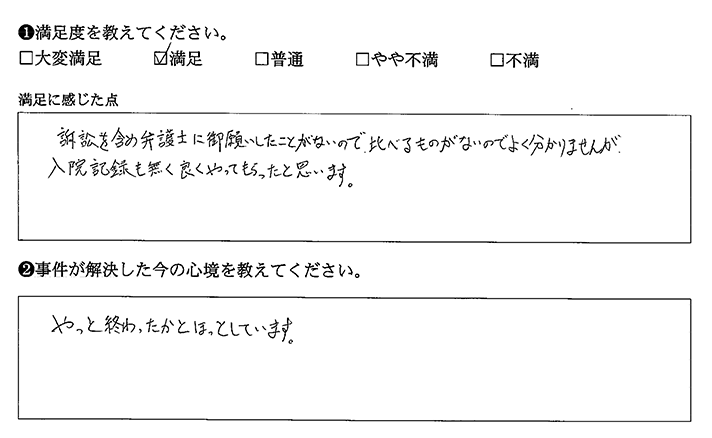 ❶満足度を教えてください。
□大変満足 ☑満足 □普通 □やや不満 □不満
満足に感じた点
訴訟を含め弁護士に御願いしたことがないので、比べるものがないのでよく分かりませんが、
入院記録も無く良くやってもらったと思います。
❷事件が解決した今の心境を教えてください。
やっと終わったかとほっとしています。